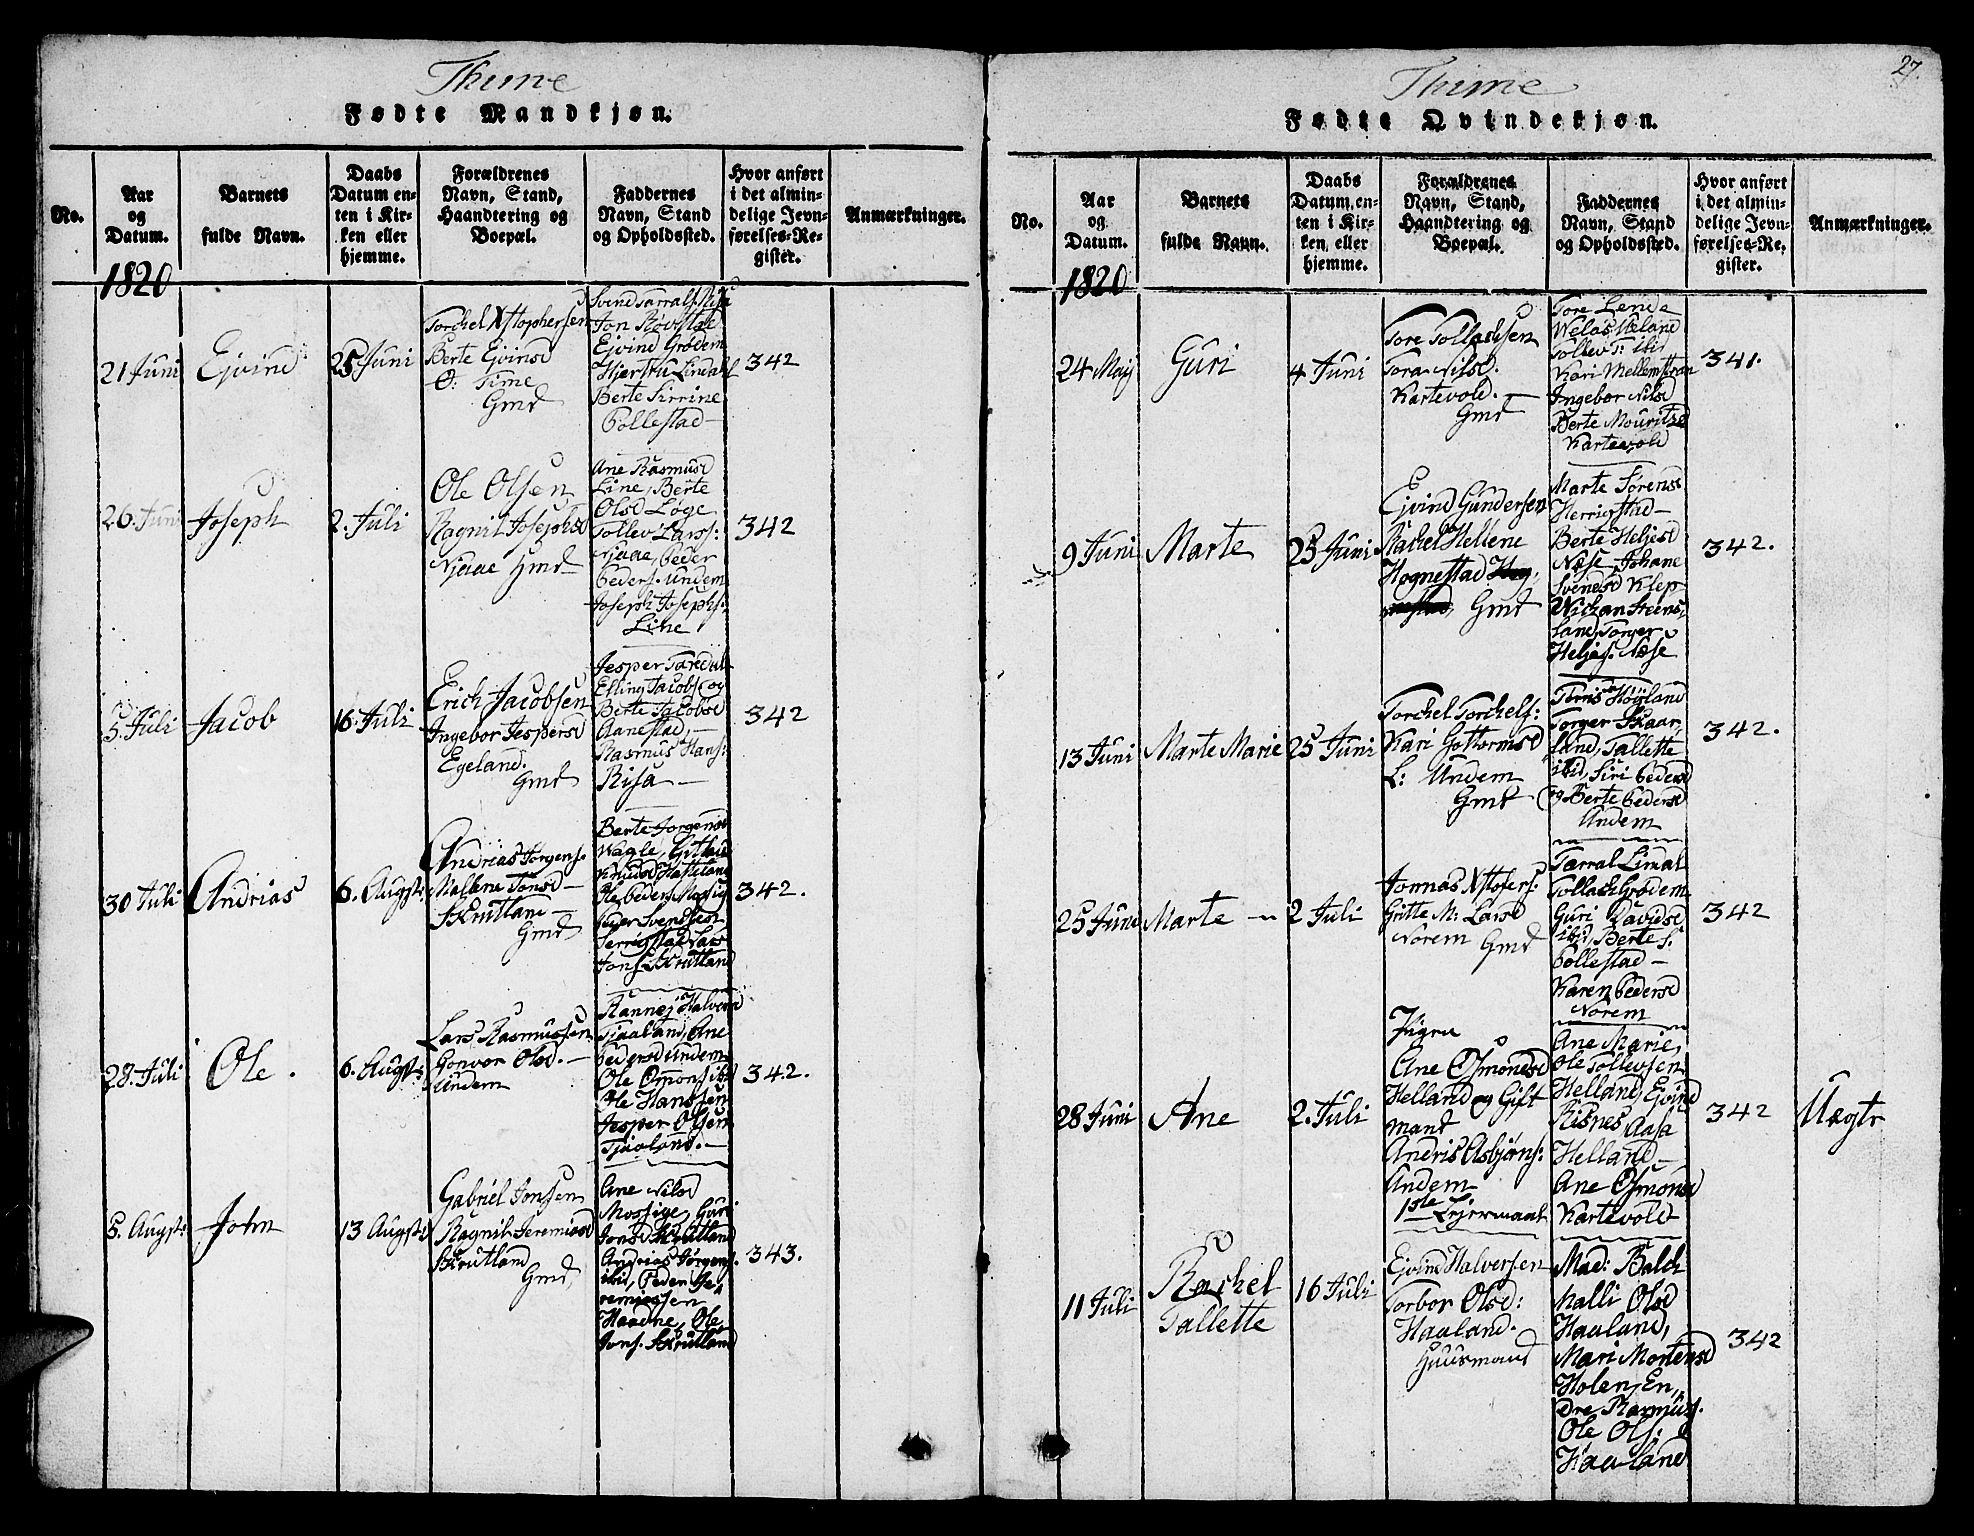 Thime
Fødte Mandkjøn.
No.
Aar
og
Datum.
Barnets
fulde Navn.
Daabs
Datum en-
ten i Kir-
ken eller
hjemme.
Forældrenes
Navn, Stand,
Haandtering og
Boepæl.
Faddernes
Navn, Stand
og Opholdssted.
Hvor anført
i det almin-
delige Jevn-
førelses-Re-
gister.
Anmærkninger.
1820
21 Juni
Ejvind
25 Juni
Torchel Xstophersen
Berte Ejvinsd
O: Time
Gmd
Svind Tarrals. Risa
Jon Røvstae
Ejvind Grødem
Lindahl
Berte Sirrine
Pollestad
342
26. Juni
Joseph
2. Juli
Ole Olsen
Ragnil Josephsd
Njaae Gmd
Ane Rasmusd
Line, Berte
Olsd Løge
Tollev Larss:
Njaae, Peder
Peders. Undem
Joseph Josephs:
Line
342
5. Juli
Jacob
16. Juli
Erich Jacobsen
Ingebor Jespersd
Egeland.
Gmd
Jesper Taredal
Elling Jacobs og
Berte Jacobsd
Aanestad,
Rasmus Hans:
Risa
342
30 Juli
Andrias
6. Augst:
Andrias Jørgens.
Mallene Jonsd
Skrutland
Gmd
Berte Jørgensd
Wagle,
Knudsd Hatteland
Ole Peders. Mossig
Peder Svends.
Serrigstad Lars
Jons. Skrutland
342.
28. Juli
Ole.
6. Augst:
Lars Rasmussen
Gonvor Olsd.
Undem
Rannej Halvorsd
Tjaaland, Ane
Pedersd Undem
Ole Omons ibd
Ole Hanssen
Jesper Olsen
Tjaaland.
342.
5. Augst:
John
13 Augst:
Gabriel Jonsen
Ragnil Jeremiasd
Skrutland
Gmd
Ane Nilsd
Mossige, Guri
Jonsd Skrutland
Andreas Jørgens.
ibid, Peder Je-
remiassen
Haavne, Ole
Jons. Skrutland
343.
27.
Thime
Fødte Qvindekjøn.
No.
Aar
og
Datum.
Barnets
fulde Navn.
Daabs
Datum en-
ten i Kir-
ken eller
hjemme.
Forældrenes
Navn, Stand,
Haandtering og
Boepæl.
Faddernes
Navn, Stand
og Opholdssted.
Hvor anført
i det almin-
delige Jevn-
førelses-Re-
gister.
Anmærkninger.
1820
24 Maij
Guri
4 Juni
Tore Tollachsen
Tora Nilsd.
Kartevold.
Gmd
Tore Lende
Welas Heland
Tollev T: ibid
Kari Mellemstran
Ingebor Nilsd
Berte Mouritzd
Kartevold
341.
9 Juni
Marte
25 Juni
Ejvind Gundersen
Rachel Hellene
Høgnestad
Gmd
Marte Sørensd
Herrigstad
Berte Heljesd
Næse, Johane
Svensd Klep
Wichan Steens-
land, Torger
Heljes. Næse
342.
13 Juni
Marte Marie
25 Juni
Torchel Torchels:
Kari Gottormsd
L: Undem
Gmd
Torris Høyland
Torger Skaar-
land, Tallette
ibid, Siri Pedersd
og Berte Pedersd
Undem
342.
25 Juni
Marte
2 Juli
Jonnas Xstofers:
Gritte M: Larsd
Norem Gmd
Tarral Lindal
Tollach Grødem
Guri Davidsd
ibid, Berte S.
Pollestad
Karen Pedersd
Norem
342
28 Juni
Ane
2. Juli
Pigen
Ane Osmondsd
Helland og Gift
mand
Andris Asbjørns:
Undem
1ste Lejermaal
Ane Marie,
Ole Tollevsen
Helland, Ejvind
Risnes, Aasa
Helland
Ane Osmondsd
Kartevold
342
Uægte
11 Juli
Rachel
Tallette
16 Juli
Ejvind Halversen
Torbor Olsd:
Haaland.
Huusmand
Mad: Balch
Malli Olsd
Haaland,
Mari Mortensd
Holen, En-
dre Rasmus.
Ole Ols. i
Haaland
342